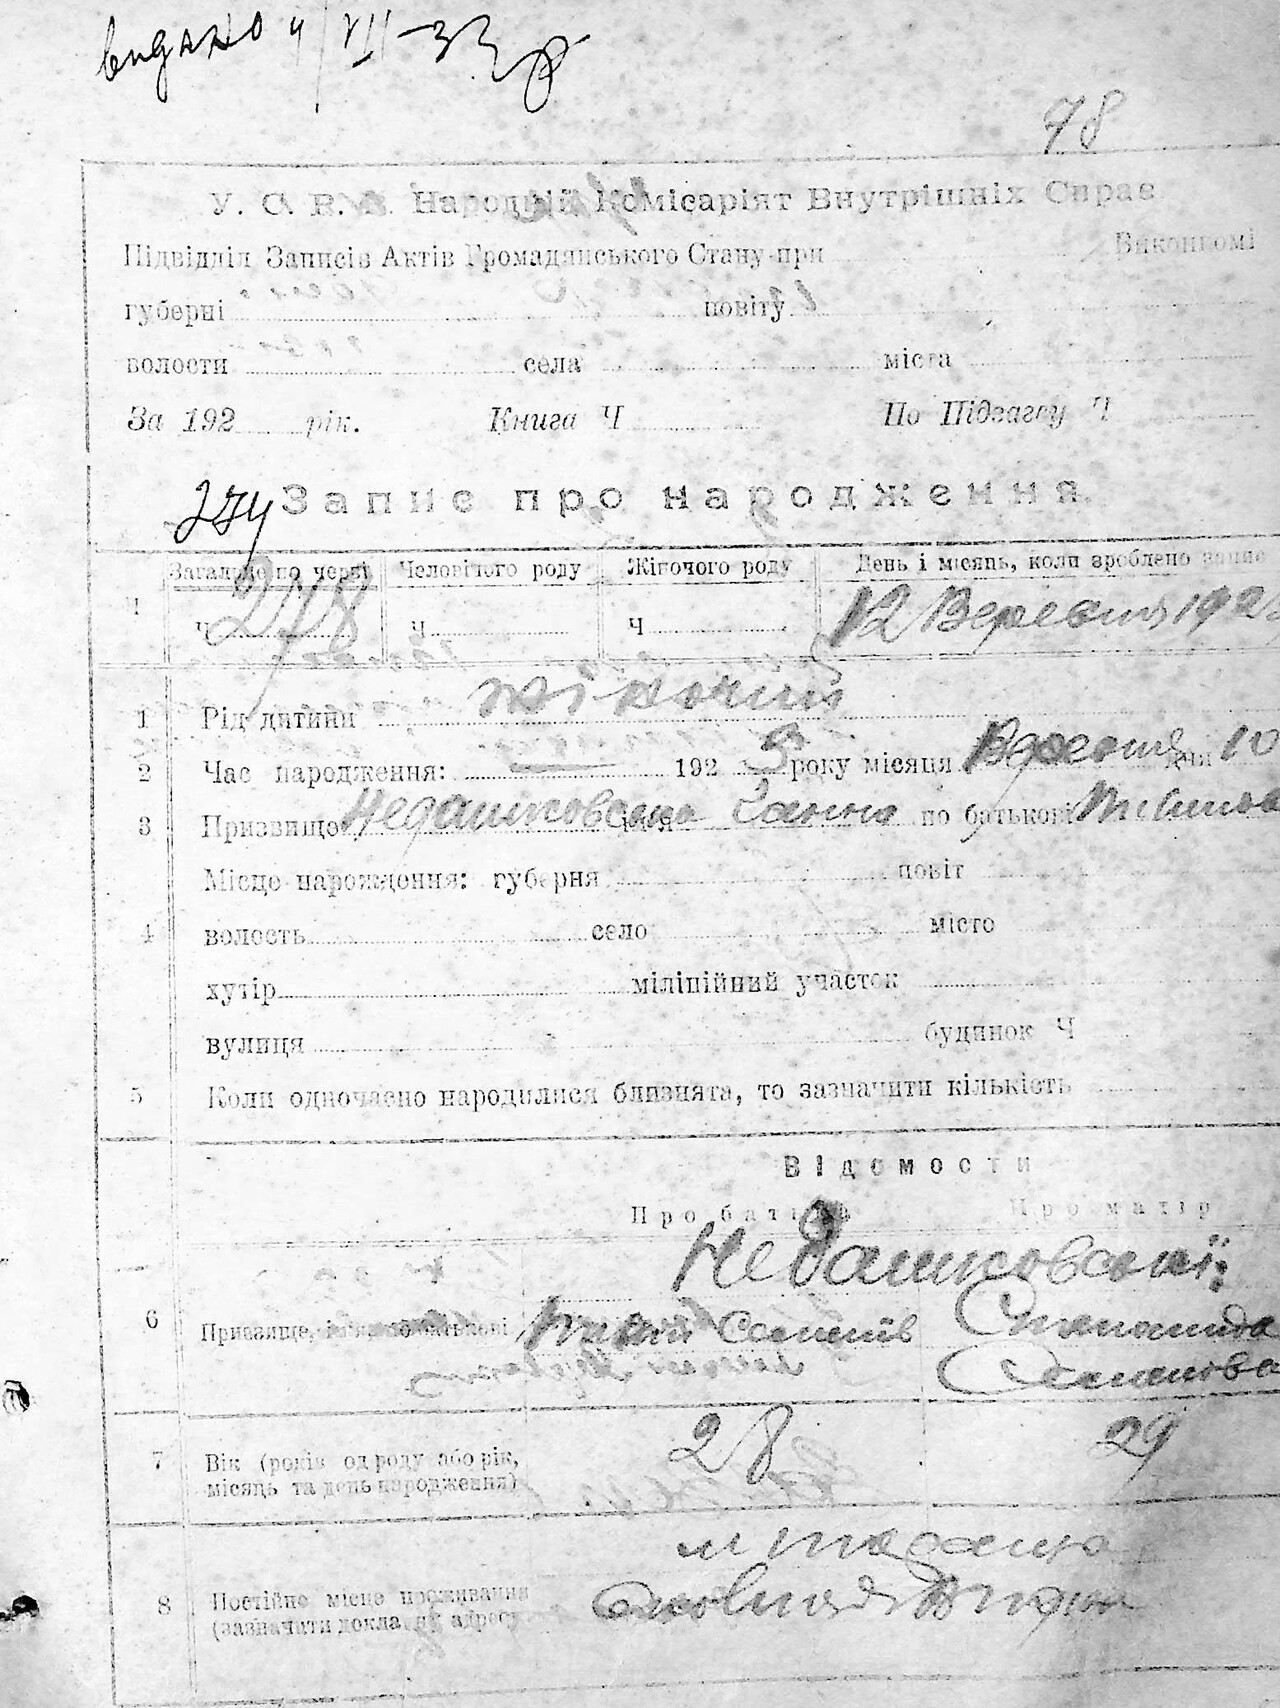 видано 4/VII-33 р
78
У. С. Р. Р. Народній Комісаріят Внутрішніх Справ
Підвідділ Записів Актів Громадянського Стану при Виконкомі
губерні повіту
волости села міста
За 192 рік. Книга Ч По Підзагсу Ч
274 Запис про народження
Загальне по черзі Человічого роду Жіночого роду День і місяць, коли зроблено запис
1 Ч 278 Ч Ч 12 Вересня 192
1 Рід дитини жіночий
2 Час народження: 192 5 року місяця Вересня дня 10
3 Призвище Недашковська ім'я Ганна по батькові
Місце народження: губерня повіт
4 волость село місто
хутір міліційний участок
вулиця будинок Ч
5 Коли одночасно народилися близнята, то зазначити кількість
Відомости
Про батька Про матір
Недашковські:
6 Призвище, ім'я по батькові
7 Вік (років од роду або рік, 28 29
місяць та день народження)
8 Постійне місце проживання
(зазначити докладну адресу)